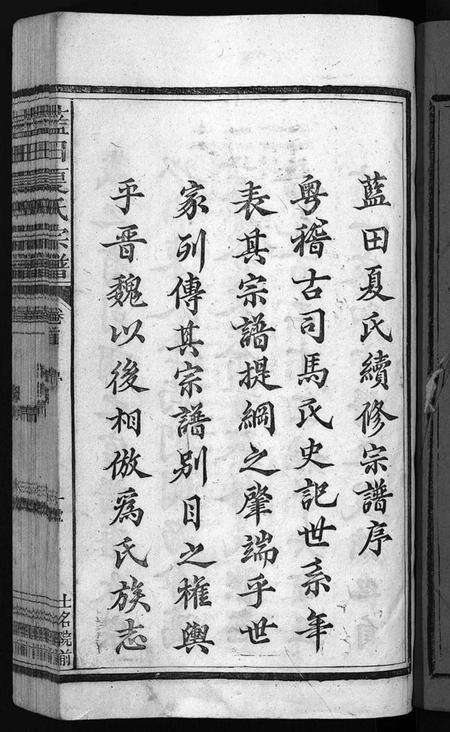 藍田夏氏續修宗譜序
粵稽古司馬氏史記世系年
表其宗譜提綱之肇端乎世
家列傳其宗譜別目之權輿
乎晉魏以後相倣爲氏族志
藍田夏氏宗譜
卷首